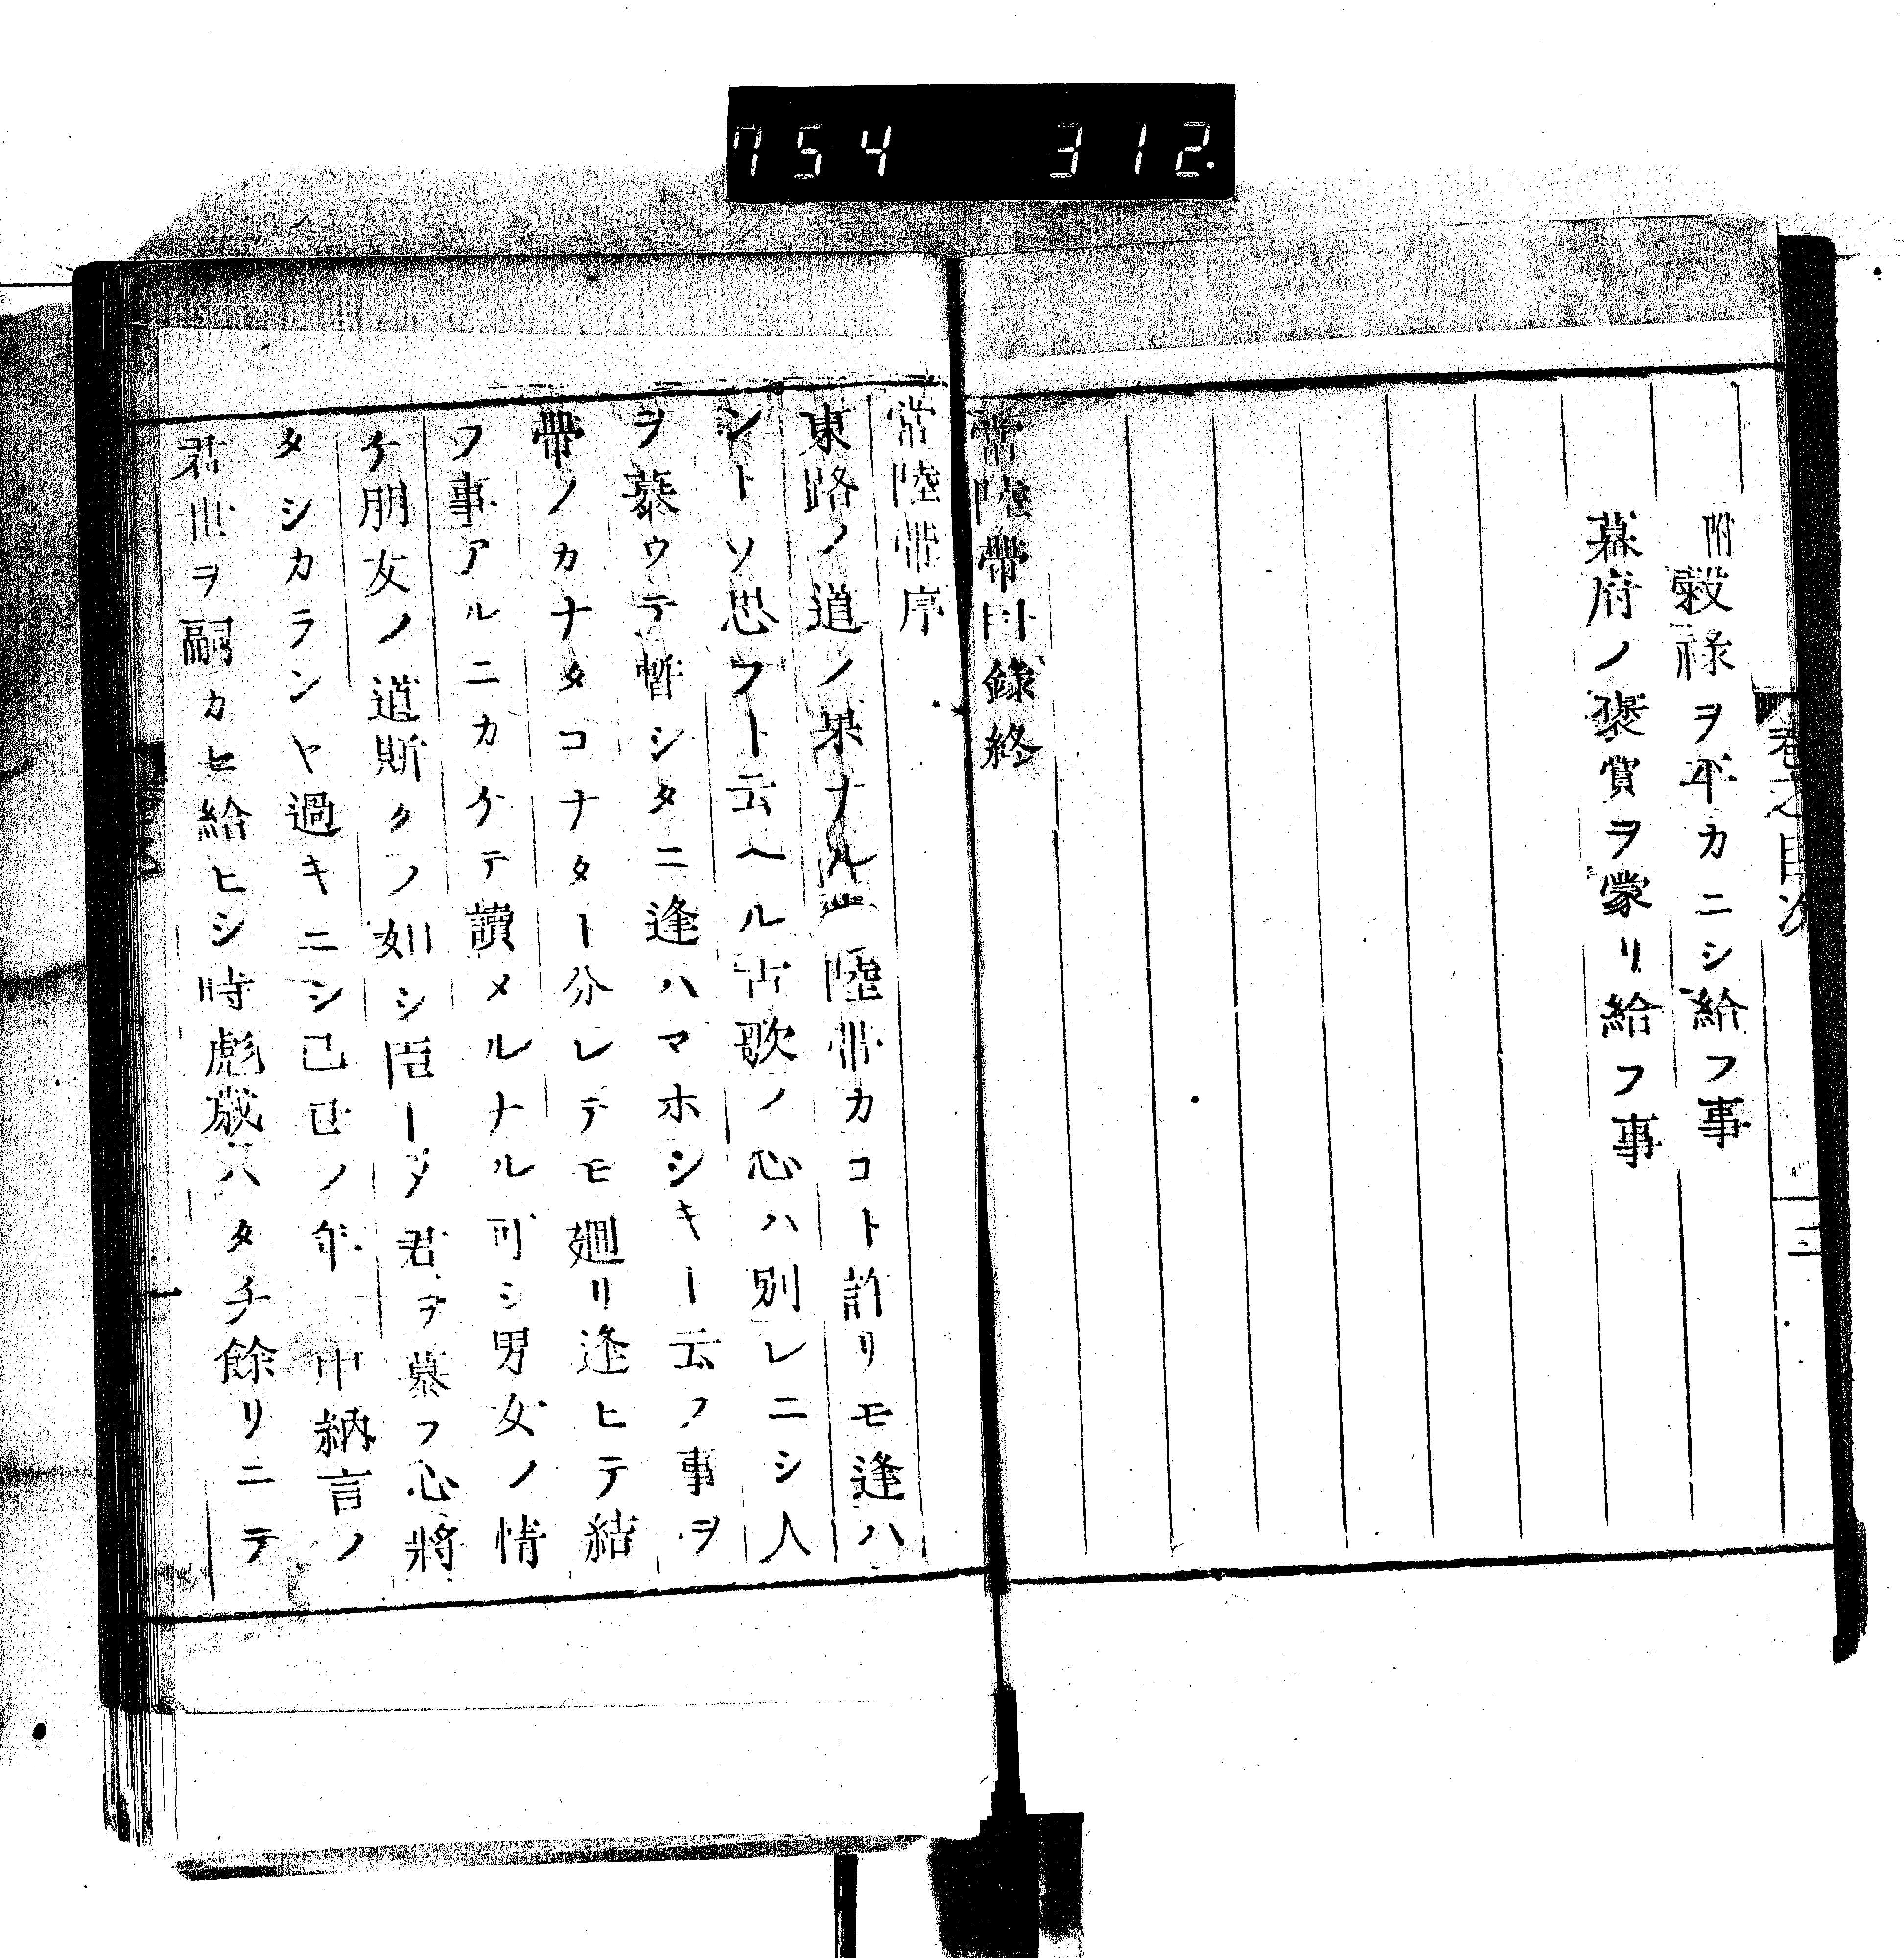 754 312
巻之目次
三
附穀祿ヲ平カニシ給フ事
幕府ノ褒賞ヲ蒙リ給フ事
常陸帶目錄終
常陸帶序
東路ノ道ノ果ナル常陸帶カコト許リモ逢ハ
ントソ思フート云ヘル古歌ノ心ハ別レニシ人
ヲ慕ウテ暫シタニ逢ハマホシキー云フ事ヲ
帶ノカナタコナタート分レテモ廻リ逢ヒテ結
フ事アルニカケテ讀メルナル可シ男女ノ情
ケ朋友ノ道斯クノ如シ臣ーメ君ヲ慕フ心將
タシカランヤ過キニシ己巳ノ年 中納言ノ
君世ヲ嗣カヒ給ヒシ時彪歲ハタチ餘リニテ